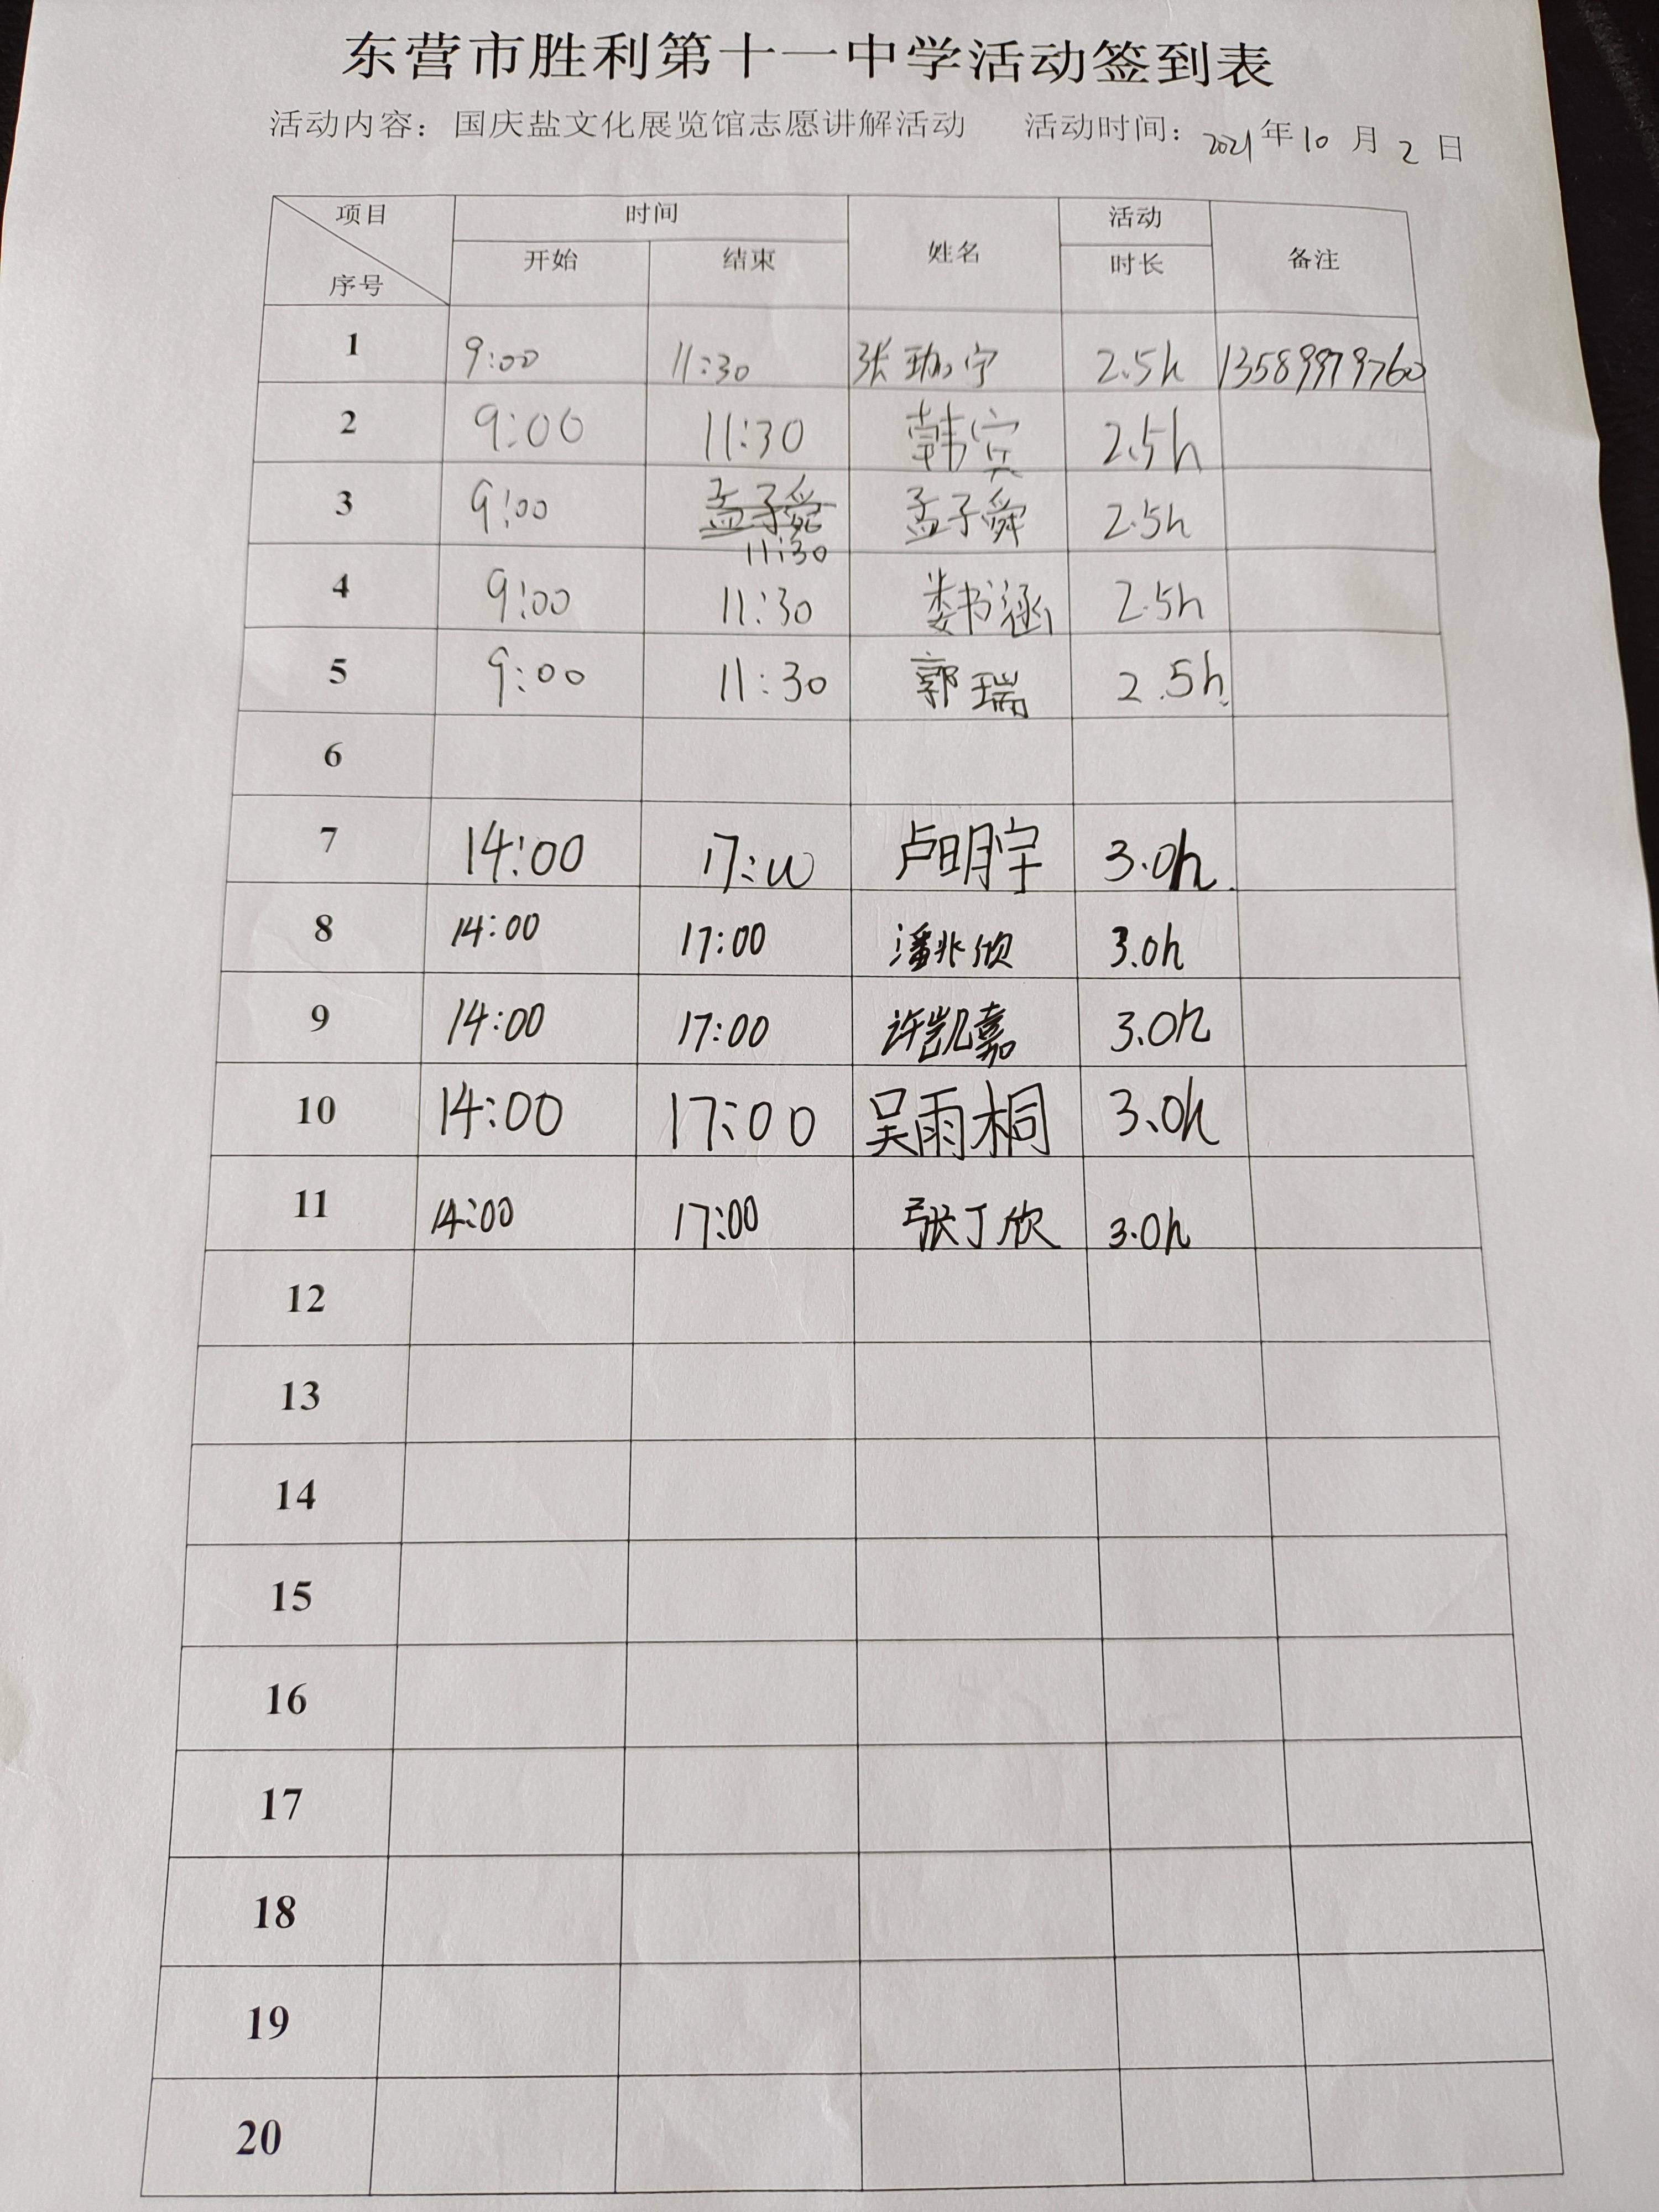 东营市胜利第十一中学活动签到表
活动内容：国庆盐文化展览馆志愿讲解活动 活动时间：2021年10月2日
项目 时间 姓名 活动 备注
序号 开始 结束 时长
1 9:00 11:30 张珈宁 2.5h 13589979760
2 9:00 11:30 韩宾 2.5h
3 9:00 孟子舜 孟子舜 2.5h
11:30
4 9:00 11:30 娄书涵 2.5h
5 9:00 11:30 郭瑞 2.5h
6
7 14:00 17:00 卢明宇 3.0h
8 14:00 17:00 潘兆欣 3.0h
9 14:00 17:00 许凯嘉 3.0h
10 14:00 17:00 吴雨桐 3.0h
11 14:00 17:00 张丁欣 3.0h
12
13
14
15
16
17
18
19
20